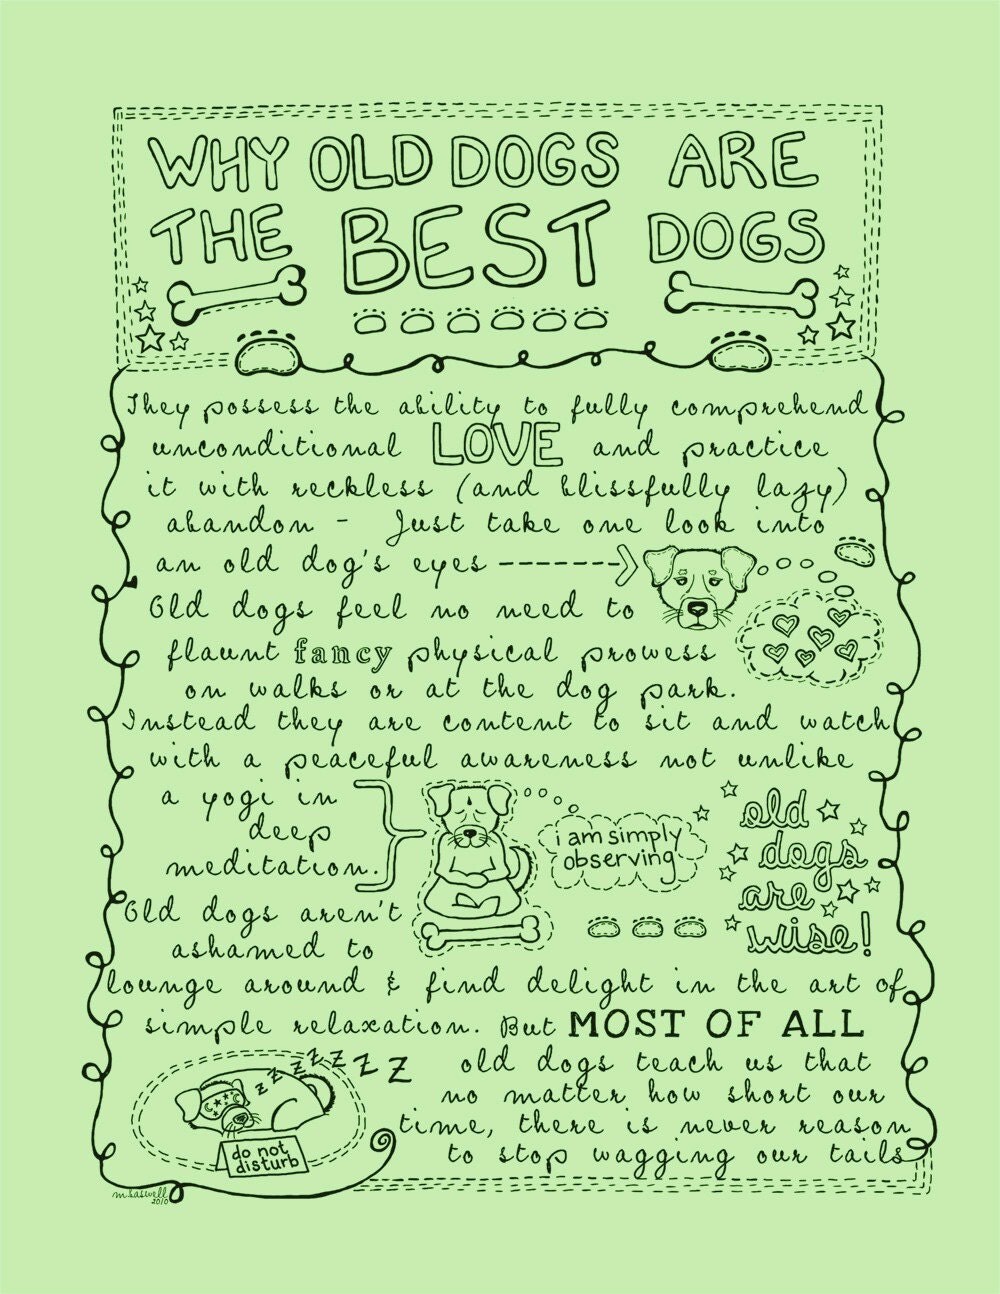 WHY OLD DOGS ARE
THE BEST DOGS
They possess the ability to fully comprehend
unconditional LOVE and practice
it with reckless (and blissfully lazy)
abandon - Just take one look into
an old dog's eyes
Old dogs feel no need to
flaunt fancy physical prowess
on walks or at the dog park.
Instead they are content to sit and watch
with a peaceful awareness not unlike
a yogi in
deep
meditation.
i am simply
observing
old
dogs
are
wise!
Old dogs aren't
ashamed to
lounge around & find delight in the art of
simple relaxation. But MOST OF ALL
old dogs teach us that
no matter how short our
time, there is never reason
to stop wagging our tails
z z z z z z z Z
do not
disturb
m.saswell
2010